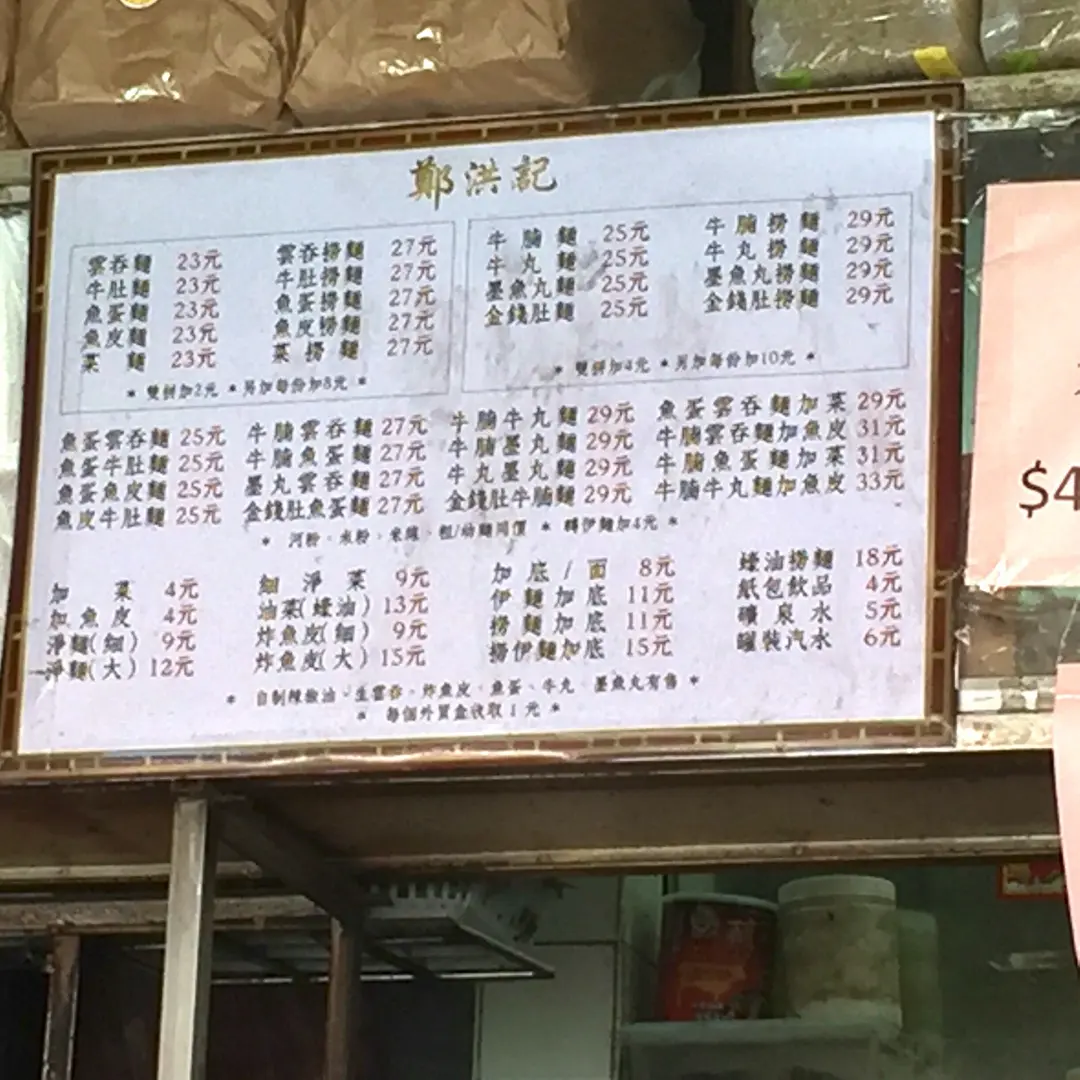 鄭洪記
雲吞麵 23元
牛肚麵 23元
魚蛋麵 23元
魚皮麵 23元
菜麵 23元
雲吞撈麵 27元
牛肚撈麵 27元
魚蛋撈麵 27元
魚皮撈麵 27元
菜撈麵 27元
* 雙拼加2元 * 另加每份加8元 *
牛腩麵 25元
牛丸麵 25元
墨魚丸麵 25元
金錢肚麵 25元
牛腩撈麵 29元
牛丸撈麵 29元
墨魚丸撈麵 29元
金錢肚撈麵 29元
* 雙拼加4元 * 另加每份加10元 *
魚蛋雲吞麵 25元
魚蛋牛肚麵 25元
魚蛋魚皮麵 25元
魚皮牛肚麵 25元
牛腩雲吞麵 27元
牛腩魚蛋麵 27元
墨丸雲吞麵 27元
金錢肚魚蛋麵 27元
牛腩牛丸麵 29元
牛腩墨丸麵 29元
牛丸墨丸麵 29元
金錢肚牛腩麵 29元
魚蛋雲吞麵加菜 29元
牛腩雲吞麵加魚皮 31元
牛腩魚蛋麵加菜 31元
牛腩牛丸麵加魚皮 33元
* 河粉、米粉、米線、粗/幼麵同價 * 轉伊麵加4元 *
加菜 4元
加魚皮 4元
淨麵(細) 9元
淨麵(大) 12元
細淨菜 9元
油菜(蠔油) 13元
炸魚皮(細) 9元
炸魚皮(大) 15元
加底/面 8元
伊麵加底 11元
撈麵加底 11元
撈伊麵加底 15元
蠔油撈麵 18元
紙包飲品 4元
礦泉水 5元
罐裝汽水 6元
* 自制辣椒油、生雲吞、炸魚皮、魚蛋、牛丸、墨魚丸有售 *
* 每個外賣盒收取1元 *
$4